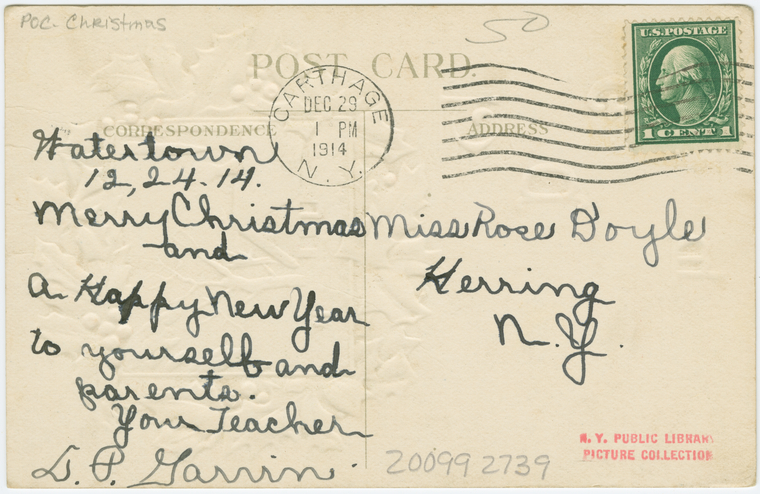 POC- Christmas
50
POST CARD.
U.S. POSTAGE
1 CENT 1
CARTHAGE
DEC 29
1 PM
1914
N.Y.
CORRESPONDENCE
ADDRESS
Watertown
12, 24. 14.
Merry Christmas
and
a Happy New Year
to yourself and
parents.
Your Teacher
Miss Rose Doyle
Herring
N.Y.
N. Y. PUBLIC LIBRARY
PICTURE COLLECTION
20099 2739